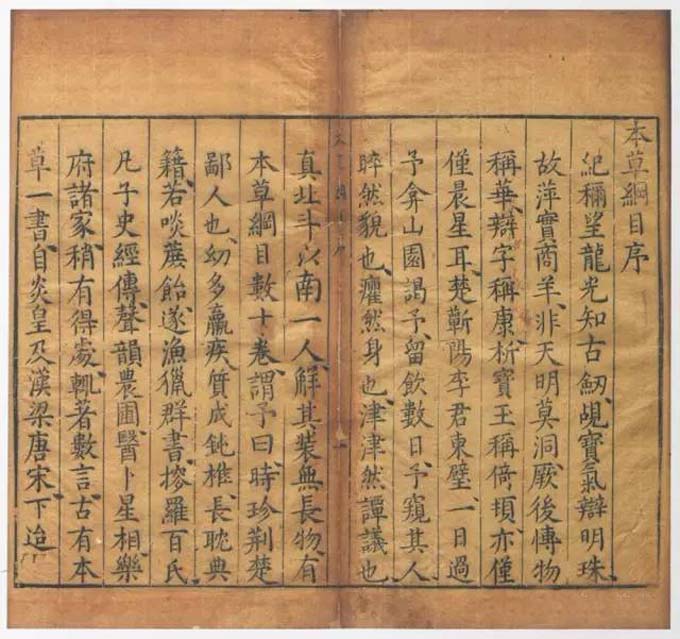 本草綱目序
紀稱望龍光知古劒覘寶氣辯明珠
故萍實商羊非天明莫洞厥後愽物
稱華辯字稱康析寳玉稱倚頓亦僅
僅晨星耳楚蘄陽李君東璧一日過
予弇山園謁予留飲數日予窺其人
睟然貌也癯然身也津津然譚議也
真北斗以南一人解其装無長物有
本草綱目數十卷謂予曰時珍荆楚
鄙人也幼多羸疾質成鈍椎長耽典
籍若啖蔗飴遂漁獵群書搜羅百氏
凡子史經傳聲韻農圃醫卜星相樂
府諸家稍有得處輒著數言古有本
草一書自炎皇及漢梁唐宋下迨